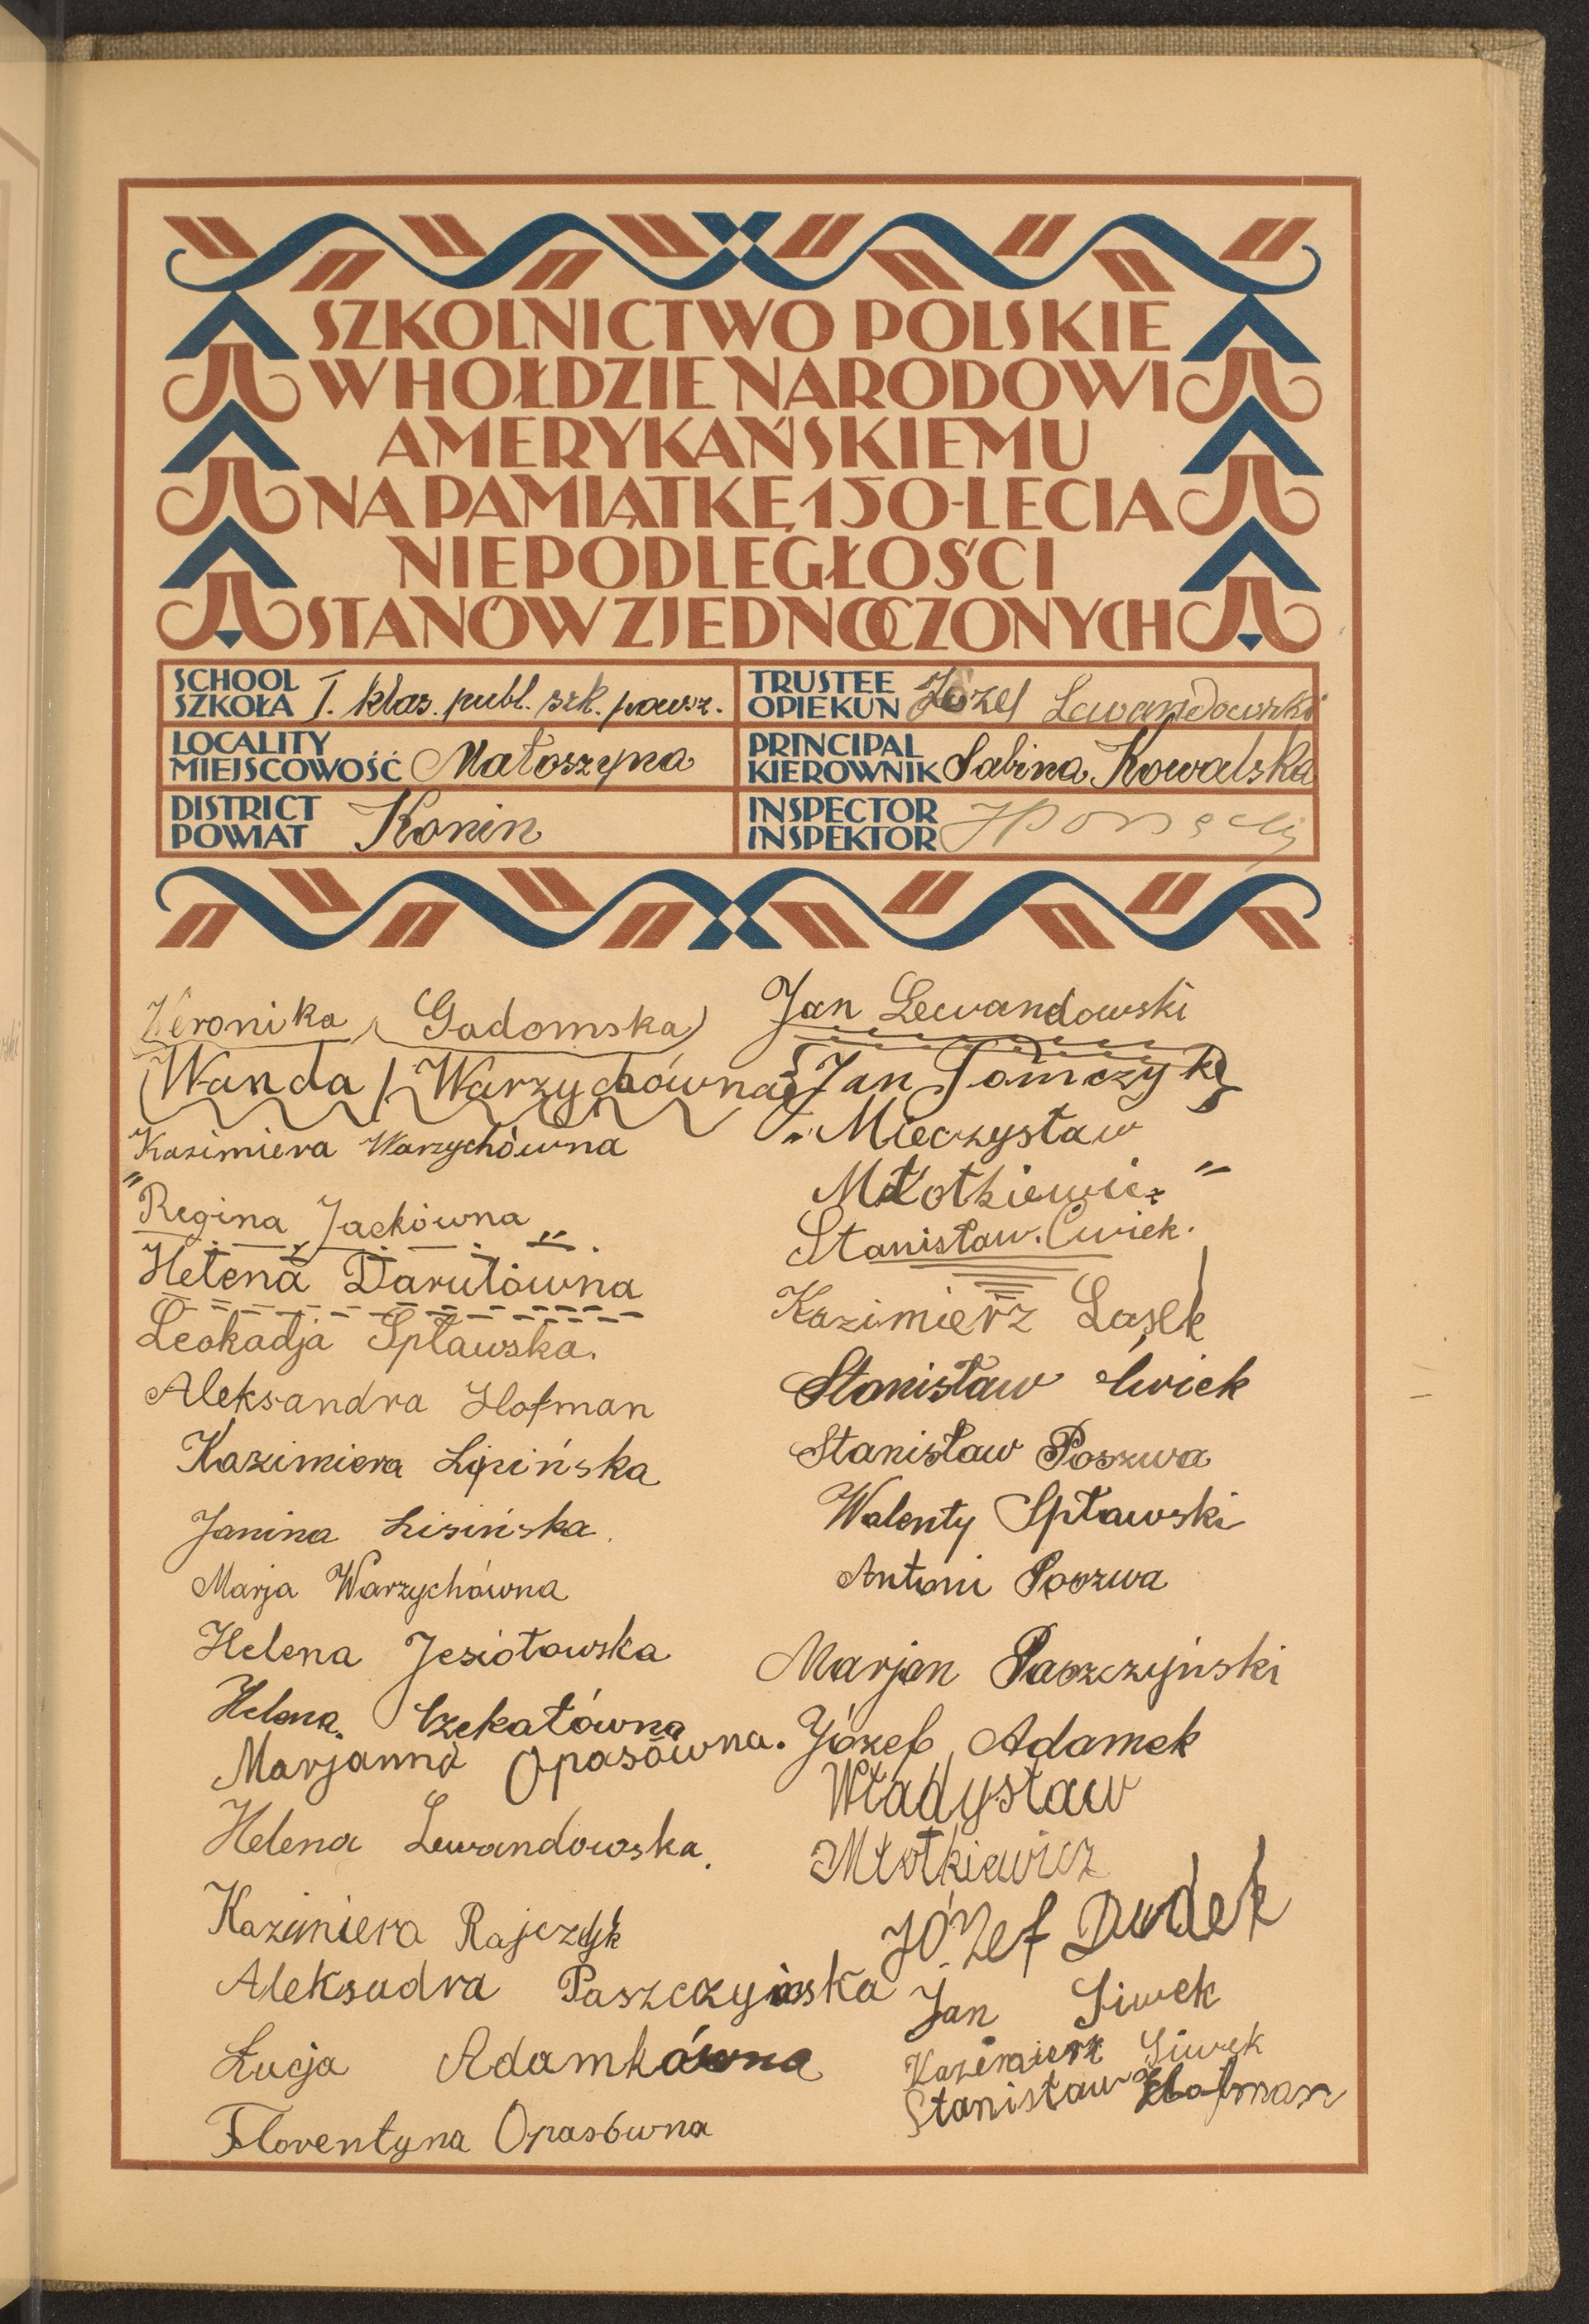 SZKOLNICTWO POLSKIE
W HOŁDZIE NARODOWI
AMERYKAŃSKIEMU
NA PAMIĄTKĘ 150-LECIA
NIEPODLEGŁOŚCI
STANÓW ZJEDNOCZONYCH
SCHOOL
SZKOŁA I. klas. publ. szk. powsz.
LOCALITY
MIEJSCOWOŚĆ Małoszyna
DISTRICT
POWIAT Konin
TRUSTEE
OPIEKUN Józef Lewandowski
PRINCIPAL
KIEROWNIK Sabina Kowalska
INSPECTOR
INSPEKTOR
Weronika Gadomska
Wanda Warzychówna
Kazimiera Warzychówna
"Regina Jackówna"
Helena Darulówna
Leokadja Spławska.
Aleksandra Hofman
Kazimiera Lipińska
Janina Lisińska.
Marja Warzychówna
Helena Jesiołowska
Helena Czekałówna
Marjanna Opasówna.
Helena Lewandowska.
Kazimiera Rajczyk
Aleksadra Paszczyńska
Łucja Adamkówna
Florentyna Opasówna
Jan Lewandowski
Jan Tomczyk
"Mieczysław
Młotkiewicz"
Stanisław. Cwiek.
Kazimierz Lasek
Stanisław Ćwiek
Stanisław Poszwa
Walenty Spławski
Antoni Poszwa
Marjan Paszczyński
Józef Adamek
Władysław
Młotkiewicz
JÓZef Dudek
Jan Siwek
Kazimierz Siwek
Stanisław Hofman